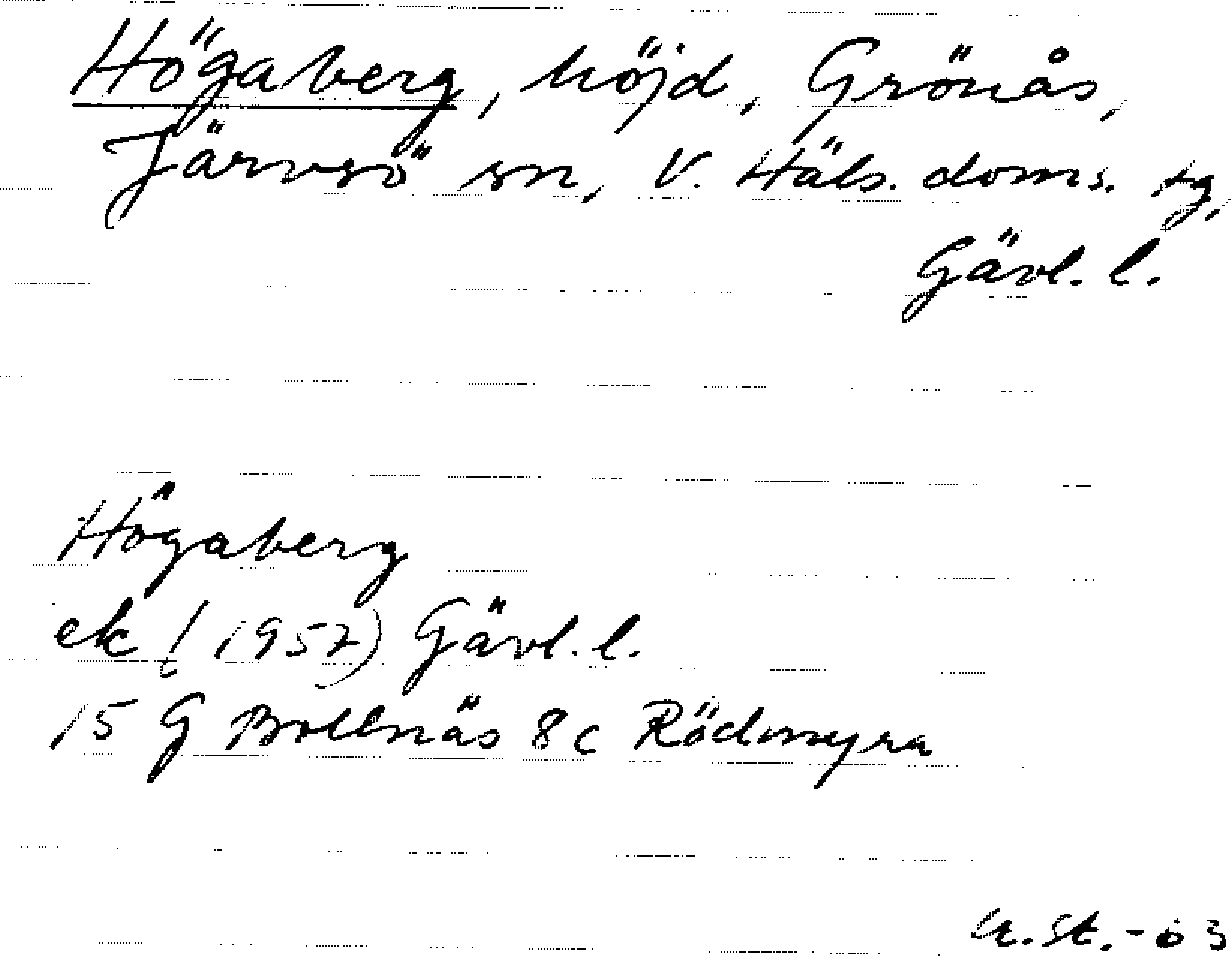 Högaberg, höjd, Grönås,
Järvsö sn, V. Häls. doms. tg,
Gävl. l.
Högaberg
ek (1957) Gävl. l.
15 G Bollnäs 8c Rödmyra
u. st. - 63